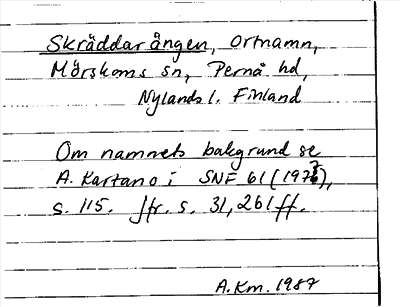 Skräddarängen, ortnamn,
Mörskoms sn, Pernå hd,
Nylands l. Finland
Om namnets bakgrund se
A. Kartano i SNF 61 (1977),
s. 115. Jfr. s. 31, 261 ff.
A.Km. 1987